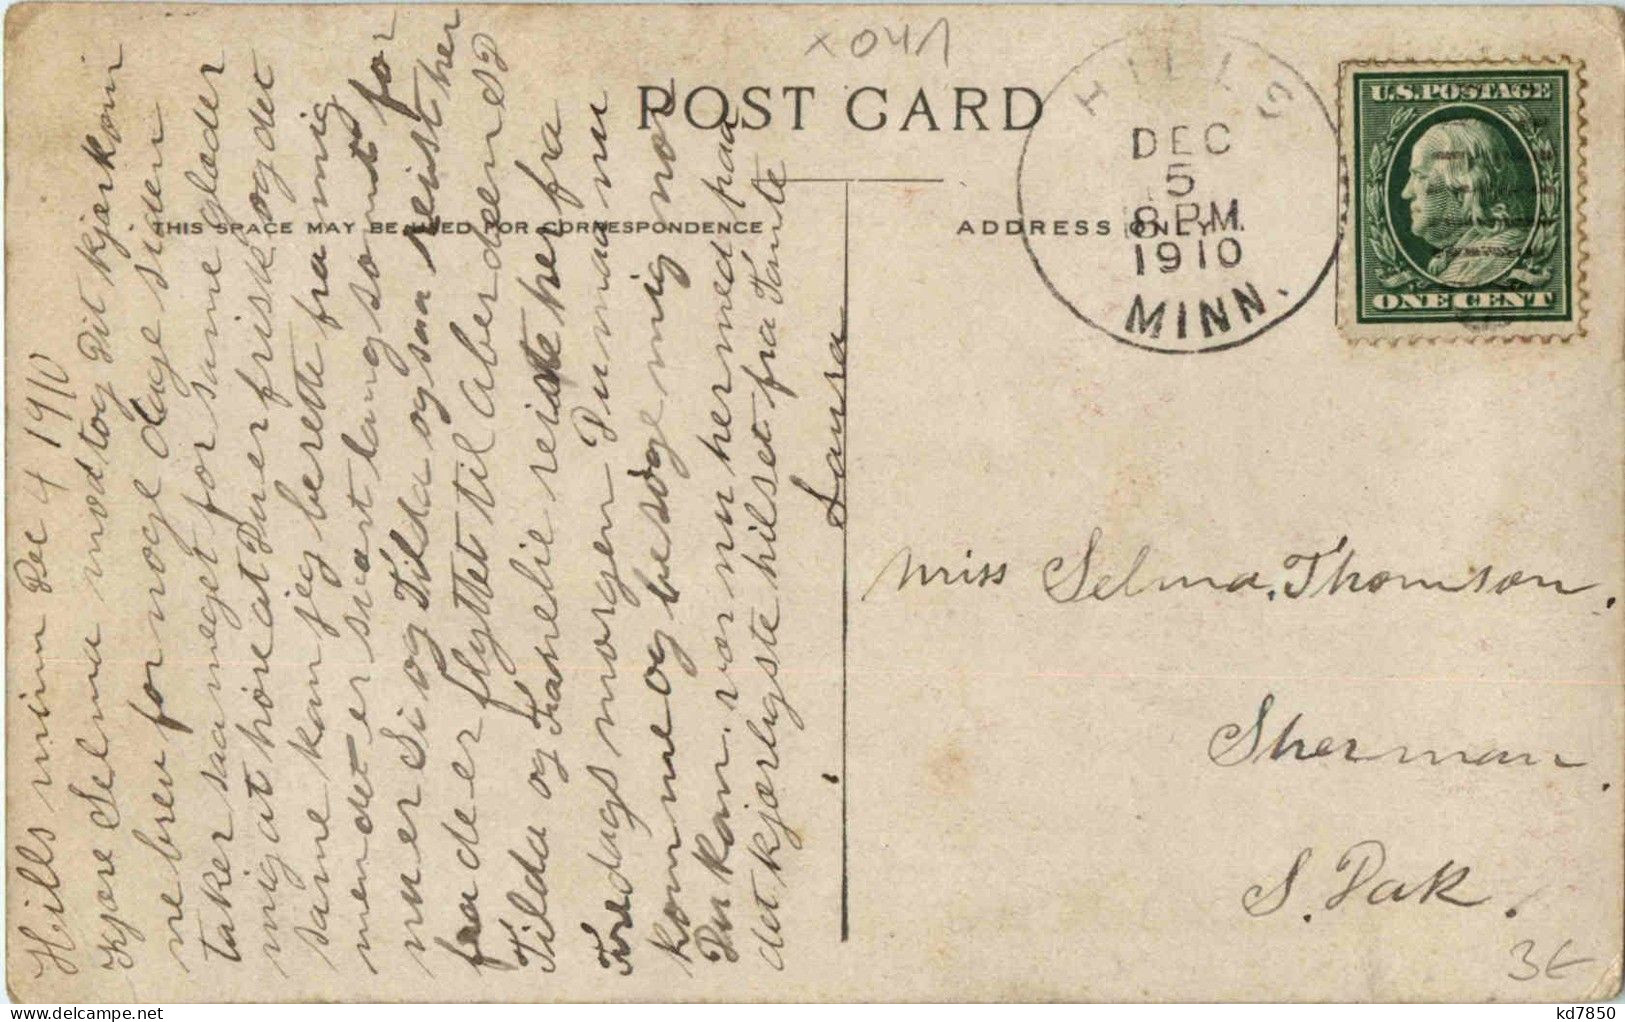 x 041
POST CARD
THIS SPACE MAY BE USED FOR CORRESPONDENCE
ADDRESS ONLY
HILLS
DEC
5
8 PM
1910
MINN.
U.S. POSTAGE
ONE CENT
Hills minn Dec 4 1910
Kjære Selma modtog Dit kjærkom
ne brev for noge dage siden
taker saa meget for same glæder
mig at høre at Du er frisk og det
same kan jeg berette fra mig
men det er svært langsomt for
nu er Si og Tilda ogsaa reist her
fra de er flyttet til Aberdeen SD
Tilda og Familie reiste her fra
Fredags morgen Du maa nu
komme og besøge mig nor
Du kan. vær nu hermed paa
det kjærligste hilset fra Tante
Laura
Miss Selma Thomson.
Sherman.
S. Dak.
3€
kd7850